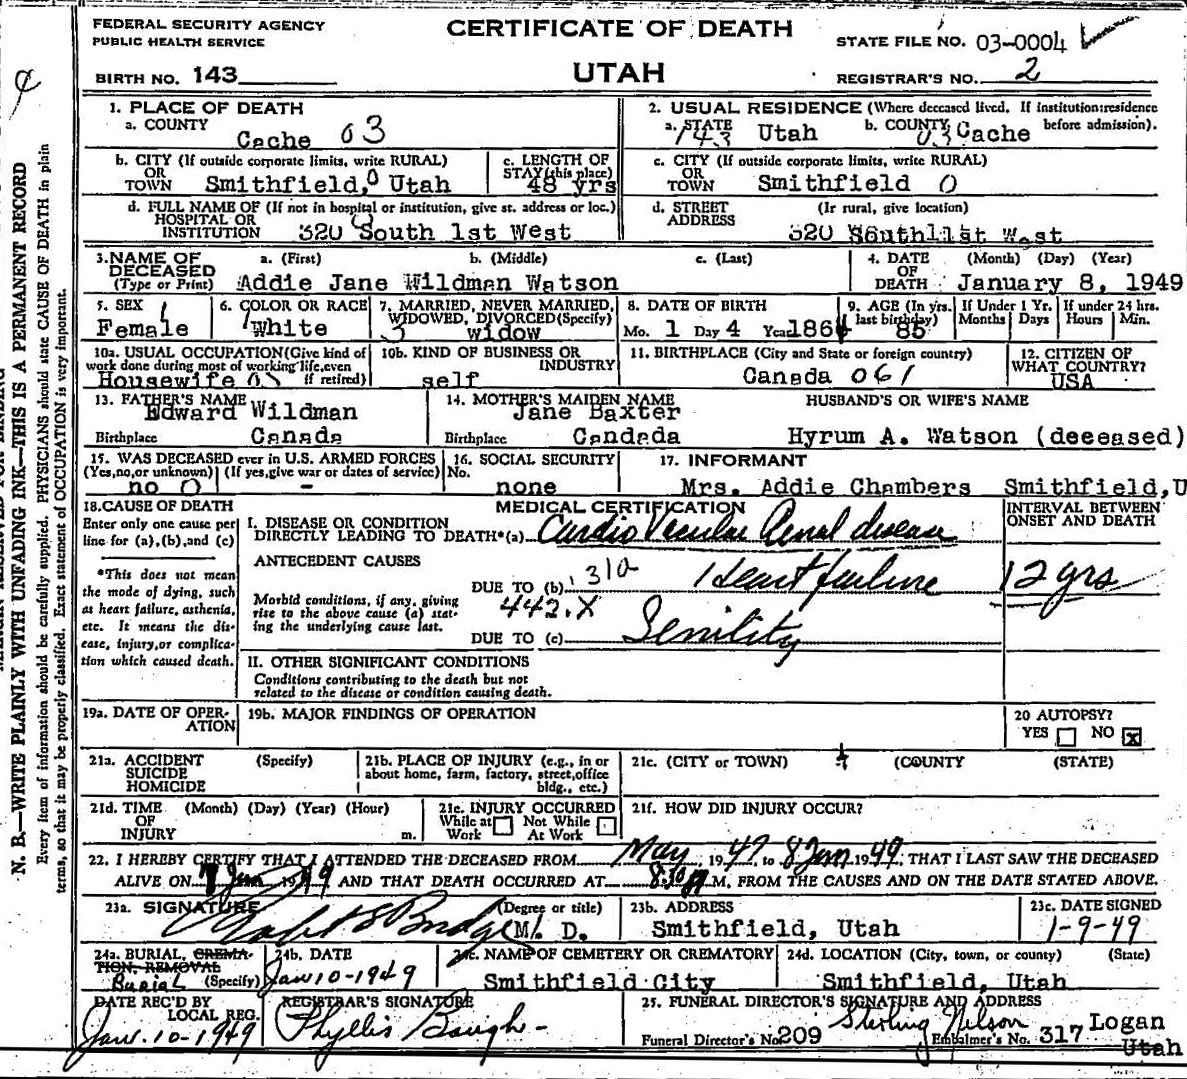 FEDERAL SECURITY AGENCY
PUBLIC HEALTH SERVICE
CERTIFICATE OF DEATH
STATE FILE NO. 03-0004
BIRTH NO. 143
UTAH
REGISTRAR'S NO. 2
1. PLACE OF DEATH
a. COUNTY
Cache 03
2. USUAL RESIDENCE (Where deceased lived. If institution:residence
before admission).
a. STATE 143 Utah b. COUNTY 03 Cache
b. CITY (If outside corporate limits, write RURAL)
OR
TOWN Smithfield, 0 Utah
c. LENGTH OF
STAY (this place)
48 yrs
c. CITY (If outside corporate limits, write RURAL)
OR
TOWN Smithfield 0
d. FULL NAME OF (If not in hospital or institution, give st. address or loc.)
HOSPITAL OR
INSTITUTION 320 South 1st West
d. STREET (Ir rural, give location)
ADDRESS
320 South 11st West
3. NAME OF a. (First) b. (Middle) c. (Last)
DECEASED
(Type or Print) Addie Jane Wildman Watson
4. DATE (Month) (Day) (Year)
OF
DEATH January 8, 1949
5. SEX 1
Female
6. COLOR OR RACE
White
7. MARRIED, NEVER MARRIED,
WIDOWED, DIVORCED(Specify)
3 widow
8. DATE OF BIRTH
Mo. 1 Day 4 Year 1864
9. AGE (In yrs. If Under 1 Yr. If under 24 hrs.
last birthday) Months Days Hours Min.
85
10a. USUAL OCCUPATION(Give kind of
work done during most of working life,even
if retired)
Housewife
10b. KIND OF BUSINESS OR
INDUSTRY
self
11. BIRTHPLACE (City and State or foreign country)
Canada 061
12. CITIZEN OF
WHAT COUNTRY?
USA
13. FATHER'S NAME
Edward Wildman
Birthplace Canada
14. MOTHER'S MAIDEN NAME
Jane Baxter
Birthplace Candada
HUSBAND'S OR WIFE'S NAME
Hyrum A. Watson (deceased)
15. WAS DECEASED ever in U.S. ARMED FORCES
(Yes,no,or unknown) (If yes,give war or dates of service)
no 0 -
16. SOCIAL SECURITY
No.
none
17. INFORMANT
Mrs. Addie Chambers Smithfield,U
18. CAUSE OF DEATH
Enter only one cause per
line for (a),(b),and (c)
*This does not mean
the mode of dying, such
as heart failure, asthenia,
etc. It means the dis-
ease, injury,or complica-
tion which caused death.
MEDICAL CERTIFICATION
INTERVAL BETWEEN
ONSET AND DEATH
I. DISEASE OR CONDITION
DIRECTLY LEADING TO DEATH*(a) Cardio Vascular Renal disease
ANTECEDENT CAUSES
DUE TO (b) 310 Heart failure 12 yrs
Morbid conditions, if any, giving
rise to the above cause (a) stat-
ing the underlying cause last.
442.X
DUE TO (c) Senility
II. OTHER SIGNIFICANT CONDITIONS
Conditions contributing to the death but not
related to the disease or condition causing death.
19a. DATE OF OPER-
ATION
19b. MAJOR FINDINGS OF OPERATION
20 AUTOPSY?
YES NO X
21a. ACCIDENT (Specify)
SUICIDE
HOMICIDE
21b. PLACE OF INJURY (e.g., in or
about home, farm, factory, street,office
bldg., etc.)
21c. (CITY or TOWN) (COUNTY) (STATE)
21d. TIME (Month) (Day) (Year) (Hour)
OF
INJURY m.
21e. INJURY OCCURRED
While at Not While
Work At Work
21f. HOW DID INJURY OCCUR?
22. I HEREBY CERTIFY THAT I ATTENDED THE DECEASED FROM May, 1947, to 8 Jan 1949, THAT I LAST SAW THE DECEASED
ALIVE ON 7 Jan 1949 AND THAT DEATH OCCURRED AT 8:30 M. FROM THE CAUSES AND ON THE DATE STATED ABOVE.
23a. SIGNATURE (Degree or title)
M. D.
23b. ADDRESS
Smithfield, Utah
23c. DATE SIGNED
1-9-49
24a. BURIAL, CREMA-
TION, REMOVAL
Burial (Specify)
24b. DATE
Jan 10-1949
24c. NAME OF CEMETERY OR CREMATORY
Smithfield City
24d. LOCATION (City, town, or county) (State)
Smithfield, Utah
DATE REC'D BY
LOCAL REG.
Jan. 10-1949
REGISTRAR'S SIGNATURE
Phyllis Baugh-
25. FUNERAL DIRECTOR'S SIGNATURE AND ADDRESS
Sterling Nelson Logan
Funeral Director's No. 209 Embalmer's No. 317 Utah
N. B.—WRITE PLAINLY WITH UNFADING INK—THIS IS A PERMANENT RECORD
Every item of information should be carefully supplied. PHYSICIANS should state CAUSE OF DEATH in plain
terms, so that it may be properly classified. Exact statement of OCCUPATION is very important.